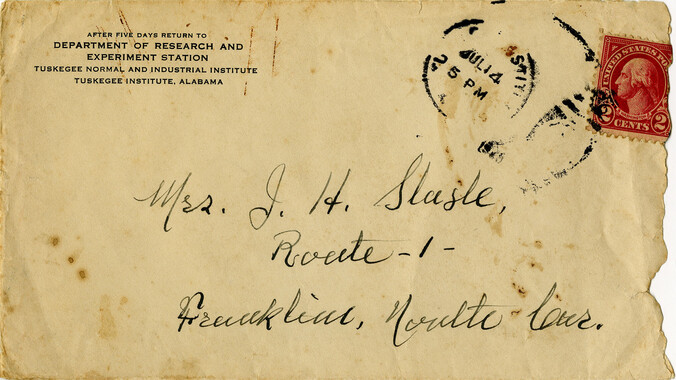 AFTER FIVE DAYS RETURN TO
DEPARTMENT OF RESEARCH AND
EXPERIMENT STATION
TUSKEGEE NORMAL AND INDUSTRIAL INSTITUTE
TUSKEGEE INSTITUTE, ALABAMA
JUL 14
5 PM
UNITED STATES PO
2 CENTS 2
Mrs. J. H. Slagle,
Route -1-
Franklin, North Car.